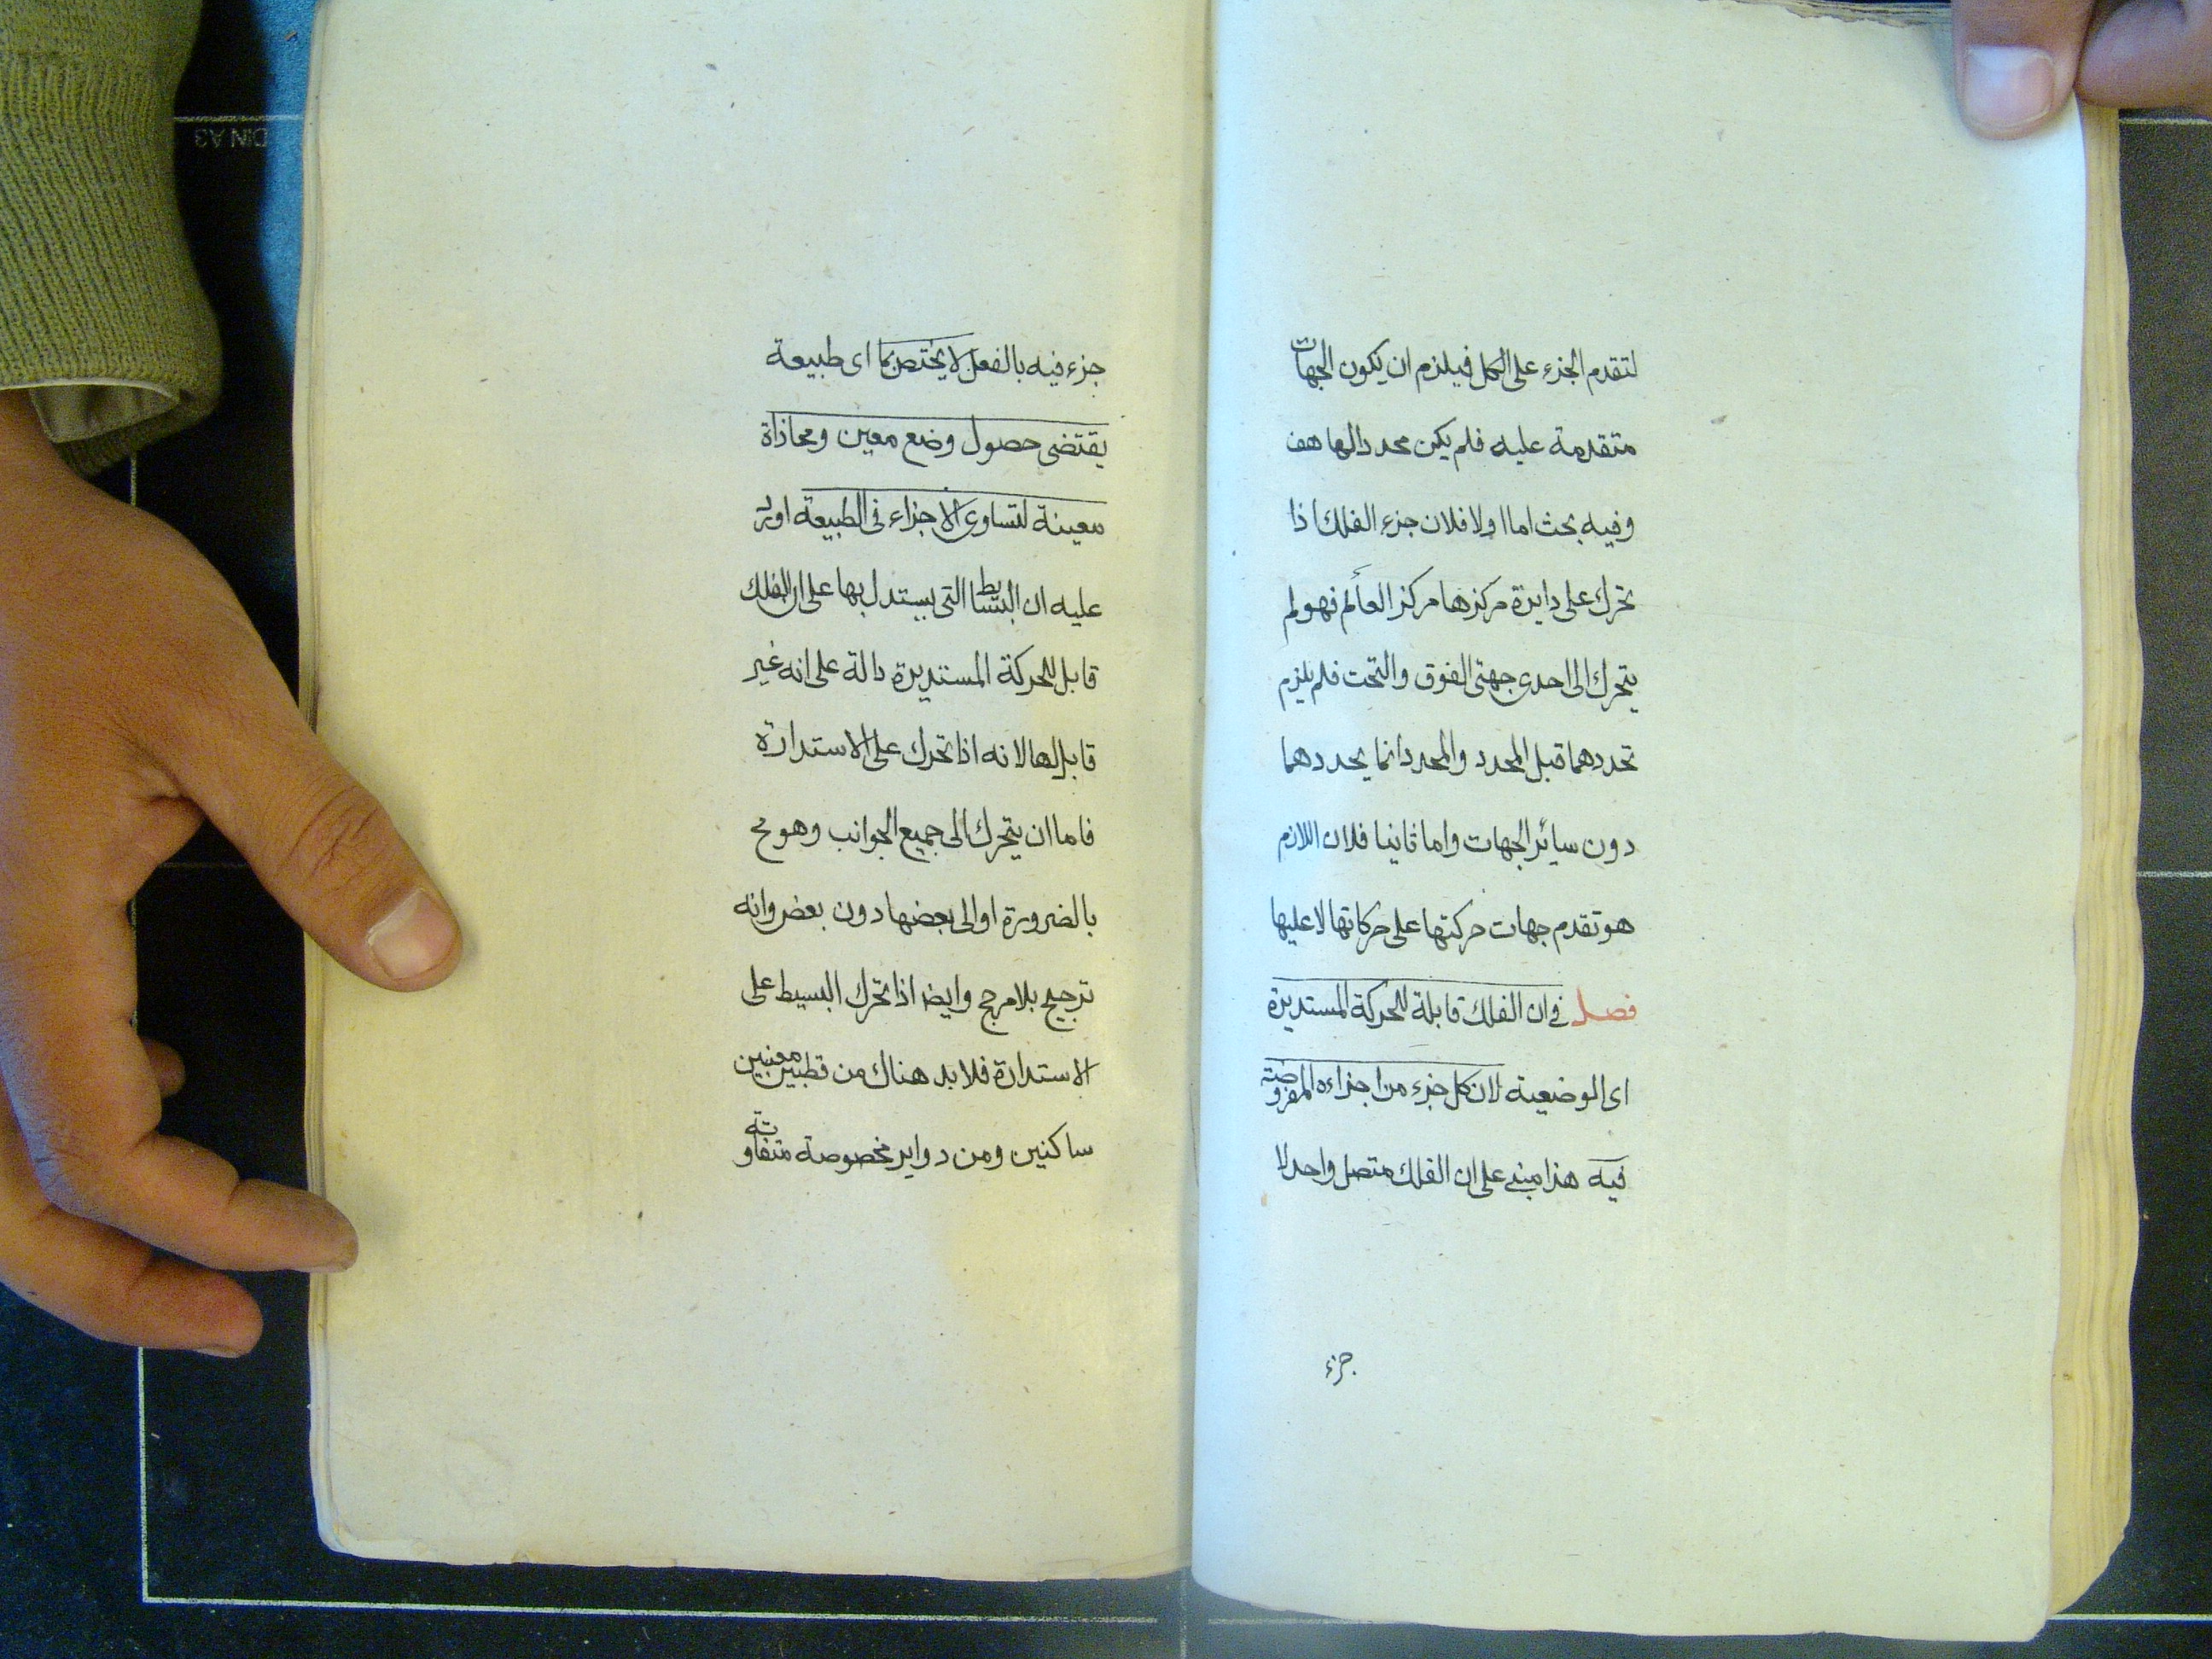 لتقدم الجزء على الكل فيلزم ان يكون الجهات
متقدمة عليه فلم يكن محددا لها هف
وفيه بحث اما اولا فلان جزء الفلك اذا
تحرك على دايرة مركزها مركز العالم فهو لم
يتحرك الى احدى جهتى الفوق والتحت فلم يلزم
تحددهما قبل المحدد والمحدد انما يحددهما
دون سائر الجهات واما ثانيا فلان اللازم
هو تقدم جهات حركتها على حركاتها لا عليها
فصل فى ان الفلك قابلة للحركة المستديرة
اى الوضعية لان كل جزء من اجزاءه المفروضة
فيه هذا مبنى على ان الفلك متصل واحد لا
جزء
جزء فيه بالفعل لا يختص بما اى طبيعة
يقتضى حصول وضع معين ومحاذاة
معينة لتساوى الاجزاء فى الطبيعة اورد
عليه ان البسائط التى يستدل بها على ان الفلك
قابل للحركة المستديرة دالة على انه غير
قابل لها لانه اذا تحرك على الاستدارة
فاما ان يتحرك الى جميع الجوانب وهو مح
بالضرورة او الى بعضها دون بعض وانه
ترجيح بلا مرجح وايضا اذا تحرك البسيط على
الاستدارة فلا بد هناك من قطبين معينين
ساكنين ومن دواير مخصوصة متفاوتة